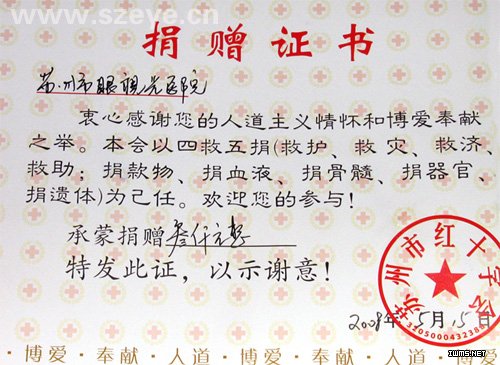 www.szeye.cn
捐赠证书
苏州市眼视光医院
衷心感谢您的人道主义情怀和博爱奉献
之举。本会以四救五捐(救护、救灾、救济、
救助；捐款物、捐血液、捐骨髓、捐器官、
捐遗体)为己任。欢迎您的参与！
承蒙捐赠叁仟元整
特发此证，以示谢意！
苏州市红十字会
3205000432388
2008年5月15日
·博爱·奉献·人道·博爱·奉献·人道·博爱
IWMS.NET